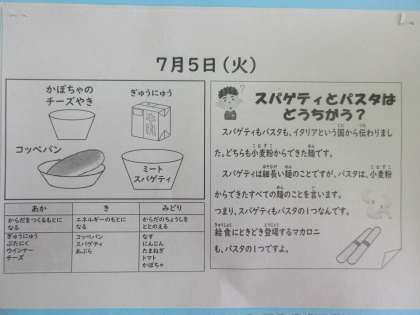 7月5日(火)
かぼちゃの
チーズやき
ぎゅうにゅう
コッペパン
ミート
スパゲティ
あか
き
みどり
からだをつくるもとに
なる
エネルギーのもとに
なる
からだのちょうしを
ととのえる
ぎゅうにゅう
ぶたにく
ウインナー
チーズ
コッペパン
スパゲティ
あぶら
なす
にんじん
たまねぎ
トマト
かぼちゃ
スパゲティとパスタは
どうちがう?
スパゲティもパスタも、イタリアという国から伝わりまし
た。どちらも小麦粉からできた麺です。
スパゲティは細長い麺のことですが、パスタは、小麦粉
からできたすべての麺のことを言います。
つまり、スパゲティもパスタの1つなんです。
給食にときどき登場するマカロニ
も、パスタの1つですよ。